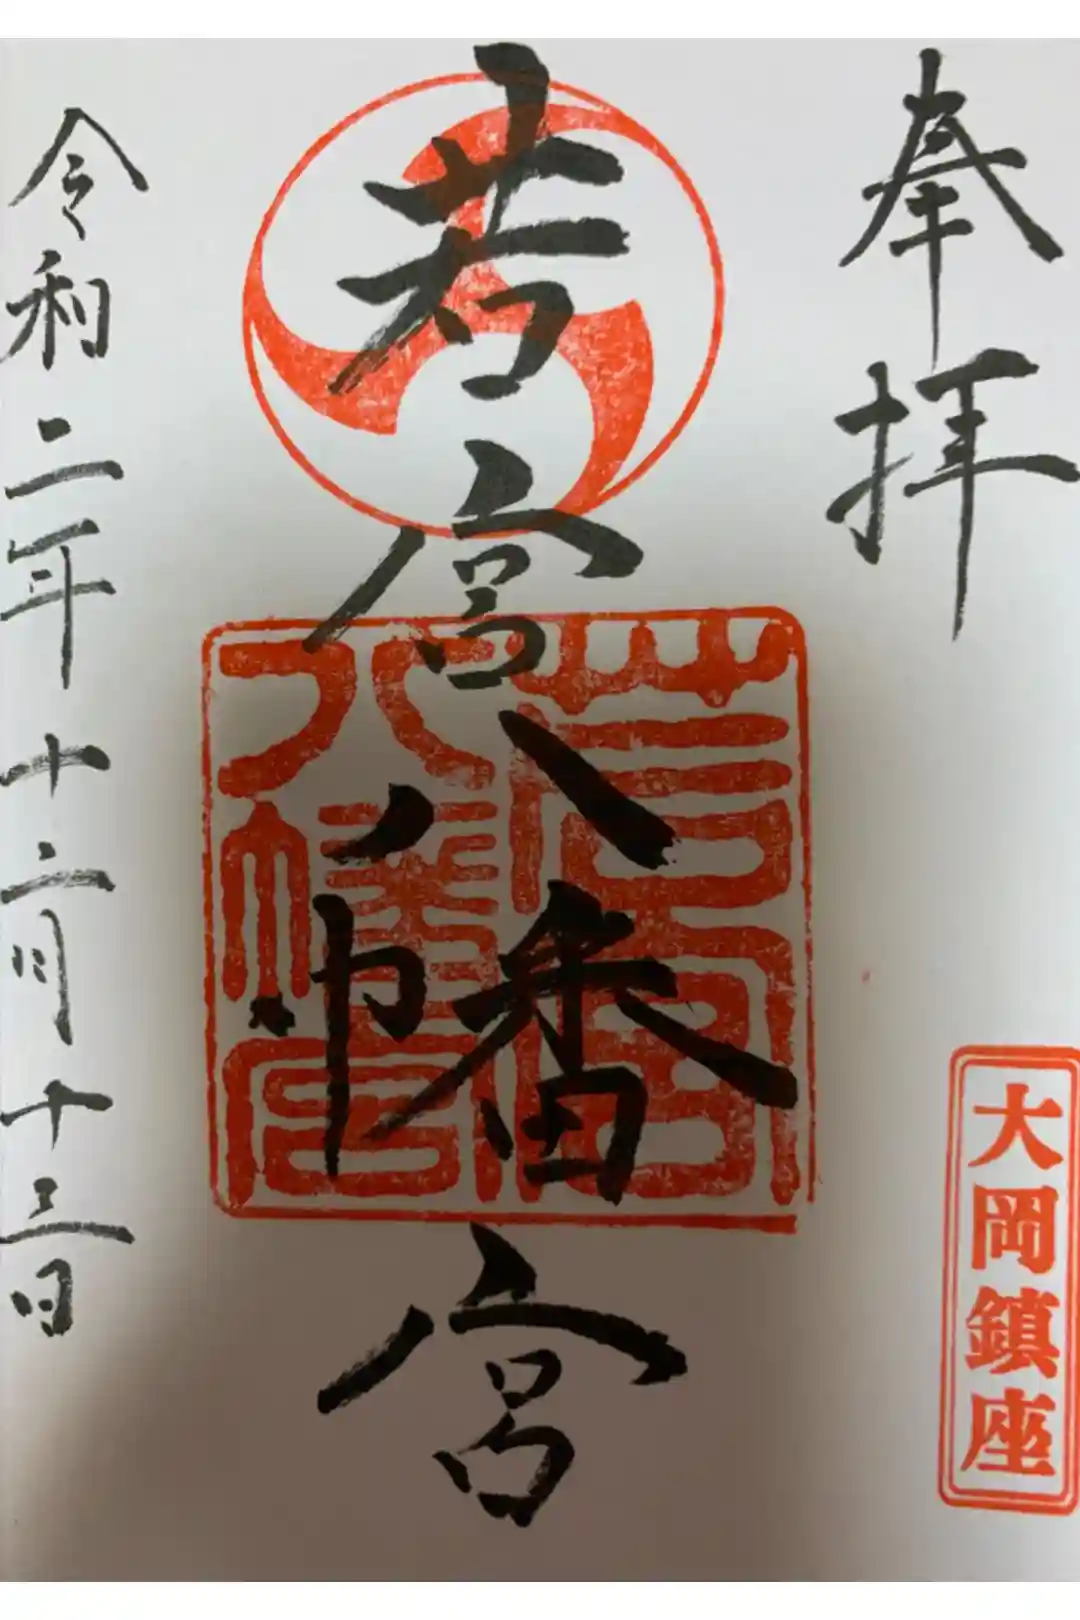 奉拝
大岡鎮座
若宮八幡宮
若宮
八幡宮
令和二年十二月十三日